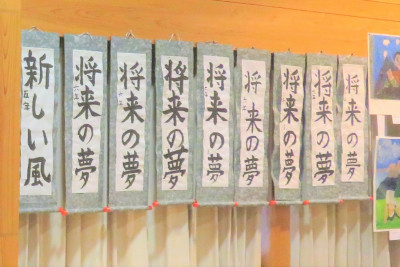 新しい風
将来の夢
将来の夢
将来の夢
将来の夢
将来の夢
将来の夢
将来の夢
将来の夢